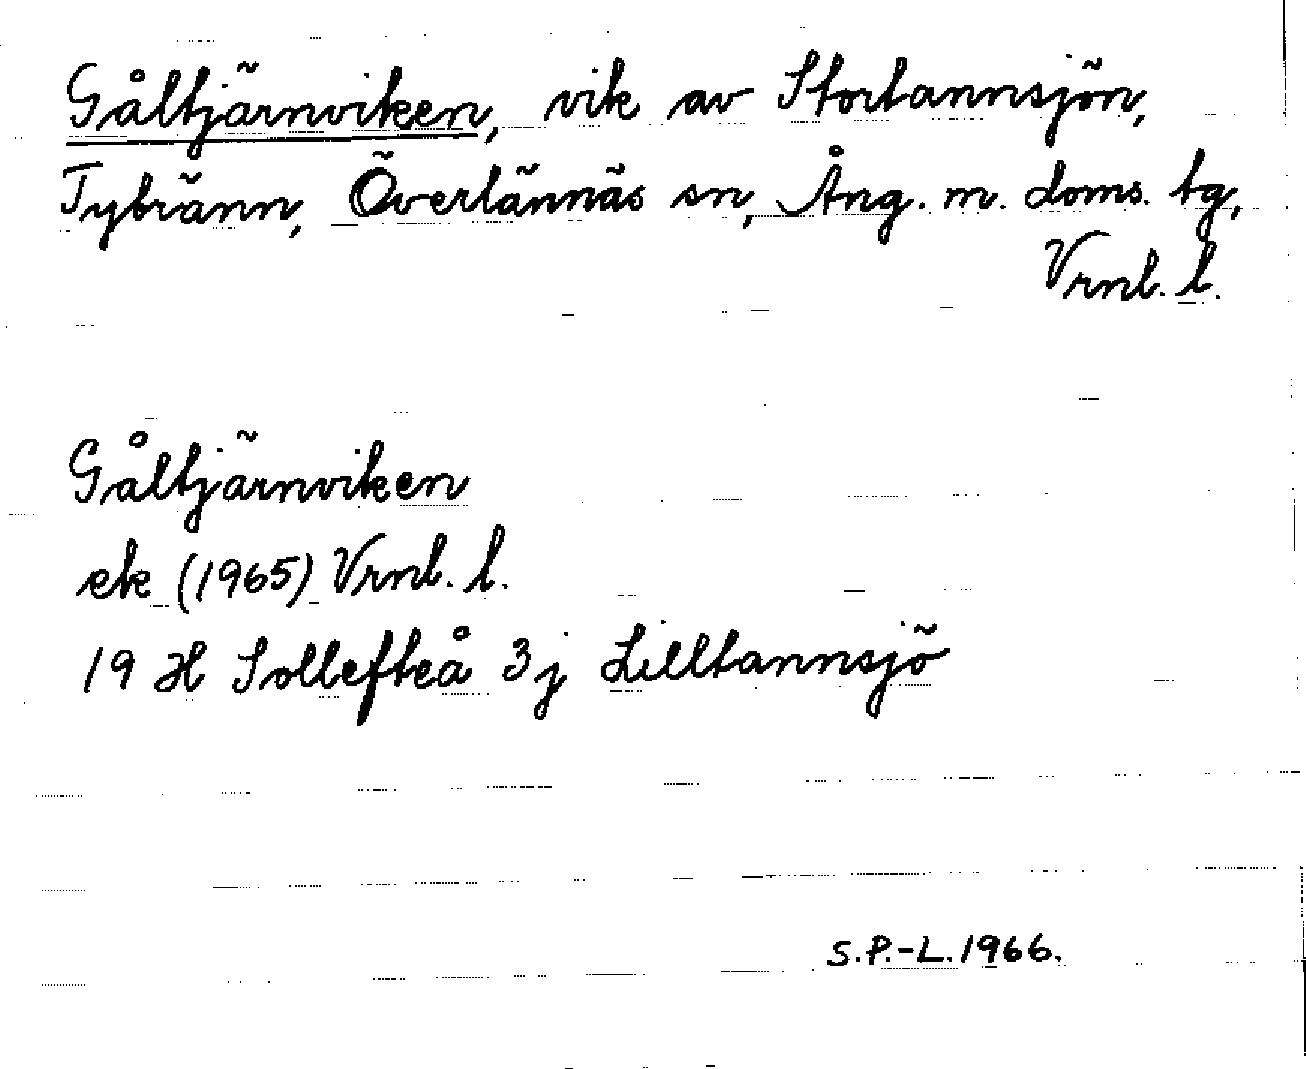 Gåltjärnviken, vik av Stortannsjön,
Tybränn, Överlännäs sn, Ång. m. doms. tg,
Vrnl. l.
Gåltjärnviken
ek (1965) Vrnl. l.
19 H Sollefteå 3j Lilltannsjö
S.P.-L. 1966.